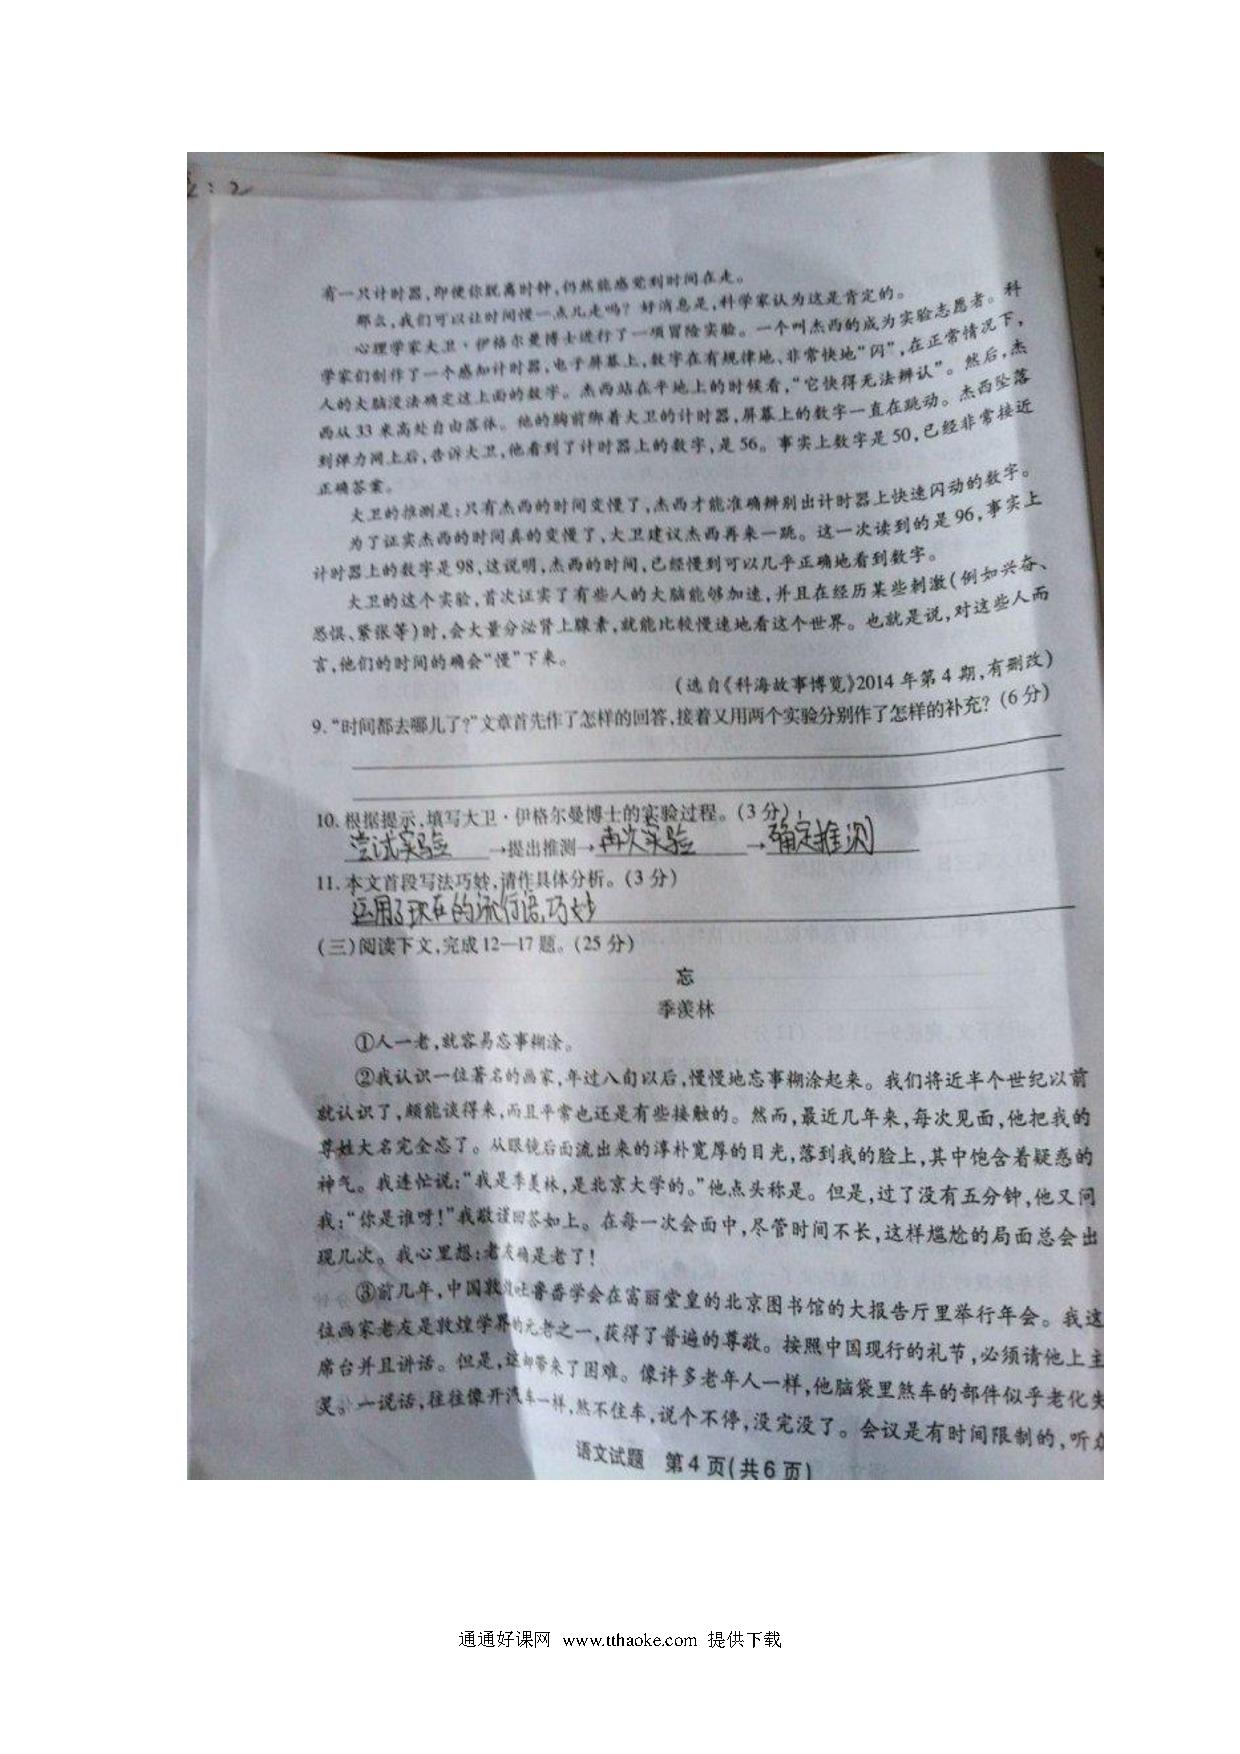 有一只计时器,即使你脱离时钟,仍然能感觉到时间在走。
那么,我们可以让时间慢一点儿走吗?好消息是,科学家认为这是肯定的。
心理学家大卫·伊格尔曼博士进行了一项冒险实验。一个叫杰西的成为实验志愿者。科
学家们制作了一个感知计时器,电子屏幕上,数字在有规律地、非常快地“闪”,在正常情况下,
人的大脑没法确定这上面的数字。杰西站在平地上的时候看,“它快得无法辨认”。然后,杰
西从33米高处自由落体。他的胸前绑着大卫的计时器,屏幕上的数字一直在跳动。杰西坠落
到弹力网上后,告诉大卫,他看到了计时器上的数字,是56。事实上数字是50,已经非常接近
正确答案。
大卫的推测是:只有杰西的时间变慢了,杰西才能准确辨别出计时器上快速闪动的数字。
为了证实杰西的时间真的变慢了,大卫建议杰西再来一跳。这一次读到的是96,事实上
计时器上的数字是98,这说明,杰西的时间,已经慢到可以几乎正确地看到数字。
大卫的这个实验,首次证实了有些人的大脑能够加速,并且在经历某些刺激(例如兴奋、
恐惧、紧张等)时,会大量分泌肾上腺素,就能比较慢速地看这个世界。也就是说,对这些人而
言,他们的时间的确会“慢”下来。
(选自《科海故事博览》2014年第4期,有删改)
9.“时间都去哪儿了?”文章首先作了怎样的回答,接着又用两个实验分别作了怎样的补充?(6分)
10.根据提示,填写大卫·伊格尔曼博士的实验过程。(3分)
尝试实验→提出推测→再次实验→确定推测
11.本文首段写法巧妙,请作具体分析。(3分)
运用了现在的流行语,巧妙
(三)阅读下文,完成12—17题。(25分)
忘
季羡林
①人一老,就容易忘事糊涂。
②我认识一位著名的画家,年过八旬以后,慢慢地忘事糊涂起来。我们将近半个世纪以前
就认识了,颇能谈得来,而且平常也还是有些接触的。然而,最近几年来,每次见面,他把我的
尊姓大名完全忘了。从眼镜后面流出来的淳朴宽厚的目光,落到我的脸上,其中饱含着疑惑的
神气。我连忙说:“我是季羡林,是北京大学的。”他点头称是。但是,过了没有五分钟,他又问
我:“你是谁呀!”我敬谨回答如上。在每一次会面中,尽管时间不长,这样尴尬的局面总会出
现几次。我心里想:老友确是老了!
③前几年,中国敦煌吐鲁番学会在富丽堂皇的北京图书馆的大报告厅里举行年会。我这
位画家老友是敦煌学界的元老之一,获得了普遍的尊敬。按照中国现行的礼节,必须请他上主
席台并且讲话。但是,这却带来了困难。像许多老年人一样,他脑袋里煞车的部件似乎老化失
灵。一说话,往往像开汽车一样,煞不住车,说个不停,没完没了。会议是有时间限制的,听众
语文试题 第4页(共6页)
通通好课网 www.tthaoke.com 提供下载